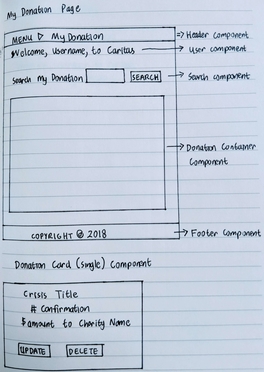 My Donation Page
MENU ▷ My Donation → Header Component
Welcome, Username, to Caritas → User component
Search My Donation SEARCH → Search component
→ Donation Container
Component
COPYRIGHT © 2018 → Footer Component
Donation Card (single) Component
Crisis Title
# Confirmation
$amount to Charity Name
UPDATE DELETE